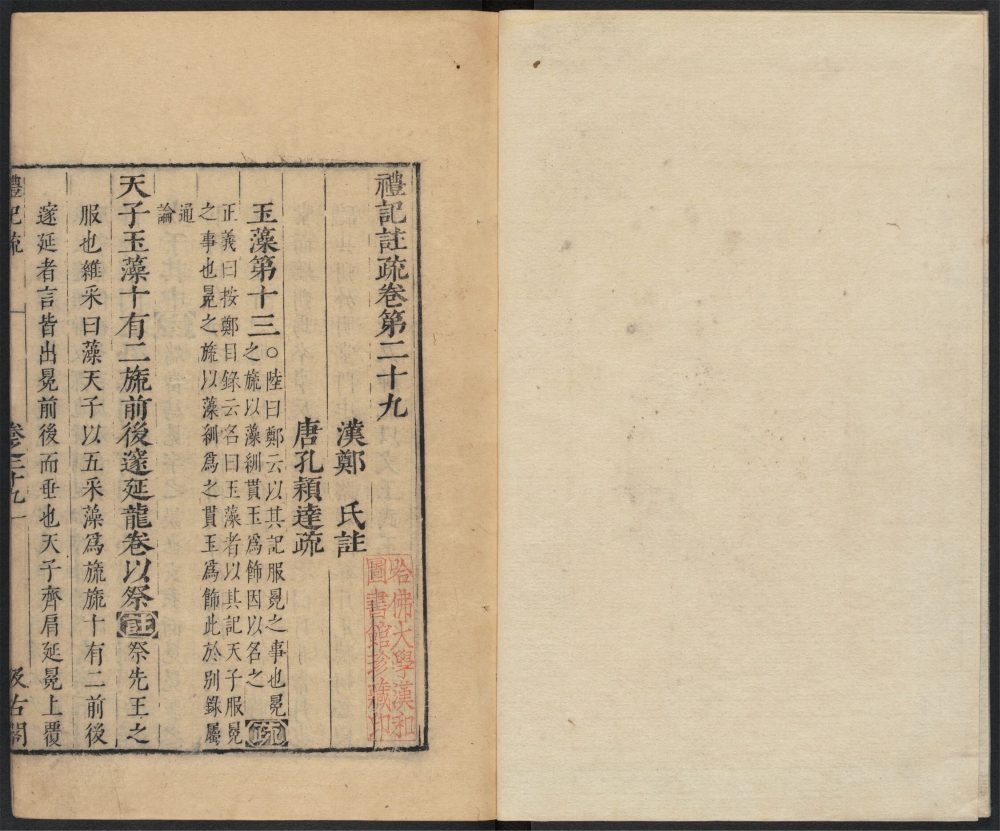 禮記註疏卷第二十九
漢鄭 氏註
唐孔穎達疏
玉藻第十三
○陸曰鄭云以其記服冕之事也冕
之旒以藻紃貫玉爲飾因以名之
疏
正義曰按鄭目錄云名曰玉藻者以其記天子服冕
之事也冕之旒以藻紃爲之貫玉爲飾此於別錄屬
通
論
天子玉藻十有二旒前後邃延龍卷以祭註祭先王之
服也雜采曰藻天子以五采藻爲旒旒十有二前後
邃延者言皆出冕前後而垂也天子齊肩延冕上覆
禮記疏
卷之二十九 一
汲古閣
哈佛大學漢和
圖書館珍藏印